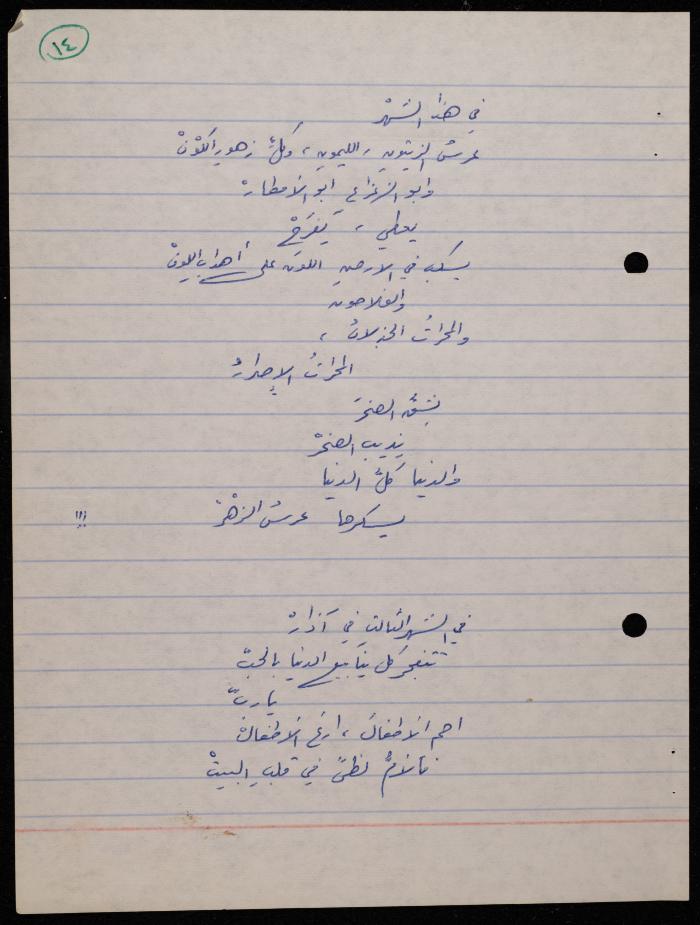 ١٤
في هذا الشهْرْ
عرسُ الزيتونِ، الليمونِ، وكلِّ زهورِ الكوْنْ
وابو الزرّاعِ ابو الأمطارْ
يعطي، يَفرَحْ
يسكب في الارض اللونَ على أهدابِ اللونْ
والفلاحون
والمحراثُ الجذلانُ،
المحراثُ الإصرارُ
يشقُّ الصخرَ
يذيب الصخْرْ
والدنيا كلُّ الدنيا
يسكرها عرسُ الزهْرْ !!!
في الشهر الثالثِ في آذارْ
تتفجر كل ينابيع الدنيا بالحبّ
ياربّ
احمِ الأطفالَ، ارعَ الأطفالْ
فالأمُّ لظىً في قلبِ البيتْ